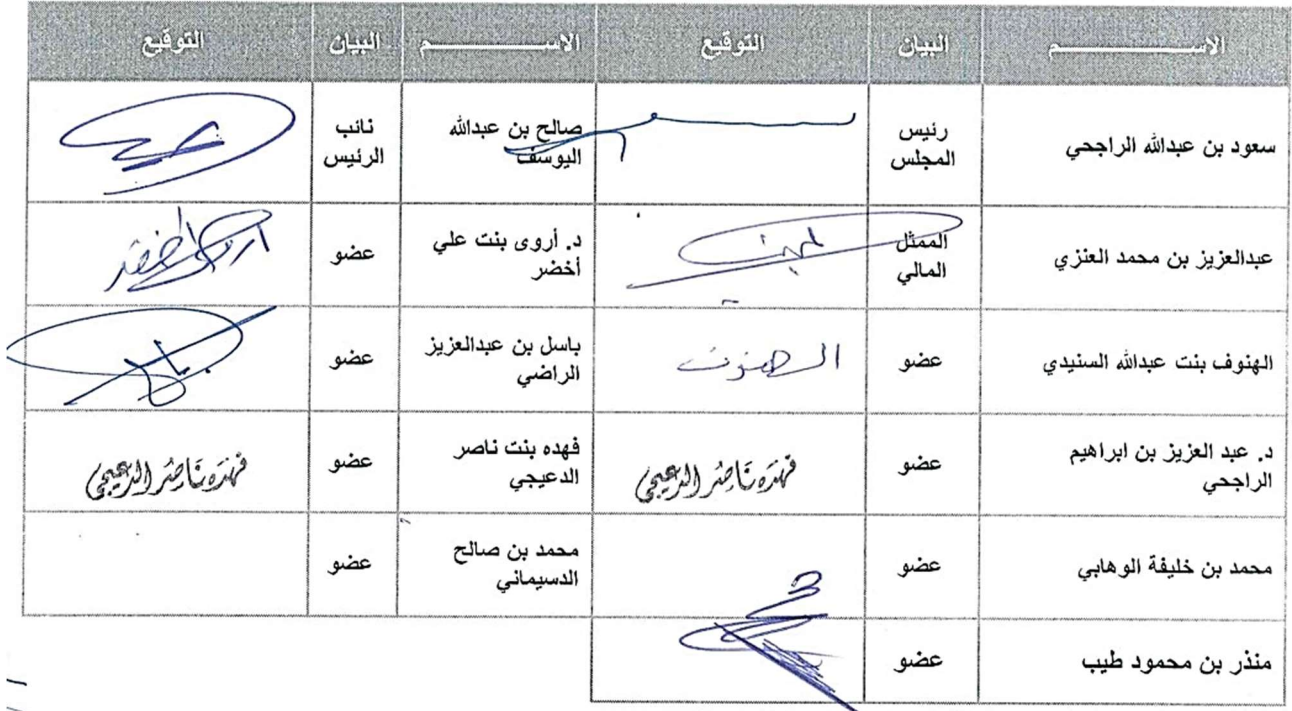 الاســـــــم البيان التوقيع الاســـــــم البيان التوقيع
سعود بن عبدالله الراجحي رئيس المجلس صالح بن عبدالله اليوسف نائب الرئيس
عبدالعزيز بن محمد العنزي الممثل المالي د. أروى بنت علي أخضر عضو
الهنوف بنت عبدالله السنيدي عضو الهنوف باسل بن عبدالعزيز الراضي عضو
د. عبد العزيز بن ابراهيم الراجحي عضو فهده ناصر الدعيجي فهده بنت ناصر الدعيجي عضو فهده ناصر الدعيجي
محمد بن خليفة الوهابي عضو محمد بن صالح الدسيماني عضو
منذر بن محمود طيب عضو